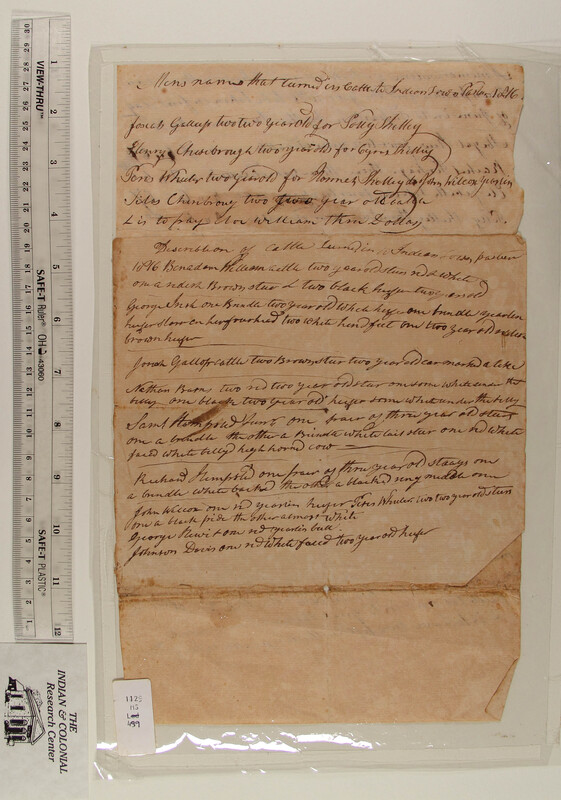 Mens names that turned in Cattle to Indian Town Pasture 1816
Jonah Gallup two two year old for Polly Shelley
Henry Chesbrough two year olds for Cyrus Shelley
Jeres Wheeler two year old for Hannah Shelley John Wilcox yearlin
Silas Chesbroug two year old cattle
& is to pay Eloc William three Dollars
Discription of cattle turned in to Indian town pasture
1816 Benadam William cattle two year old steers red & white
one a redish Brown steer & two black heifer two year old
George Irish one Brindle two year old which heifer one brindle yearlen
heifer Starr on her fourhead two white hind feet one two year old
brown heifer
Jonah Gallops cattle two Brown stear two year old ear marked a like
Nathan Barns two red two year old stear one some white under the
belley one black two year old heifer some white under the belly
Saml Hempsted Junr one pair of three year old stears
one a brindle the other a Brindle white laist steer one red white
faced white belly'd high horned cow
Richard Hempsted one pair of three year old staags one
a brindle white backed the other a blacked ring middle one
John Wilcox one red yearlin heifer Jeres Wheeler two two year old steers
one a black pide the other almost white
George Hewit one red yearlin bull.
Johnson Davis one red white faced two year old heifer
VIEW-THRU™
SAFE-T Ruler™ OH 43060
SAFE-T PLASTIC®
THE
INDIAN & COLONIAL
Research Center